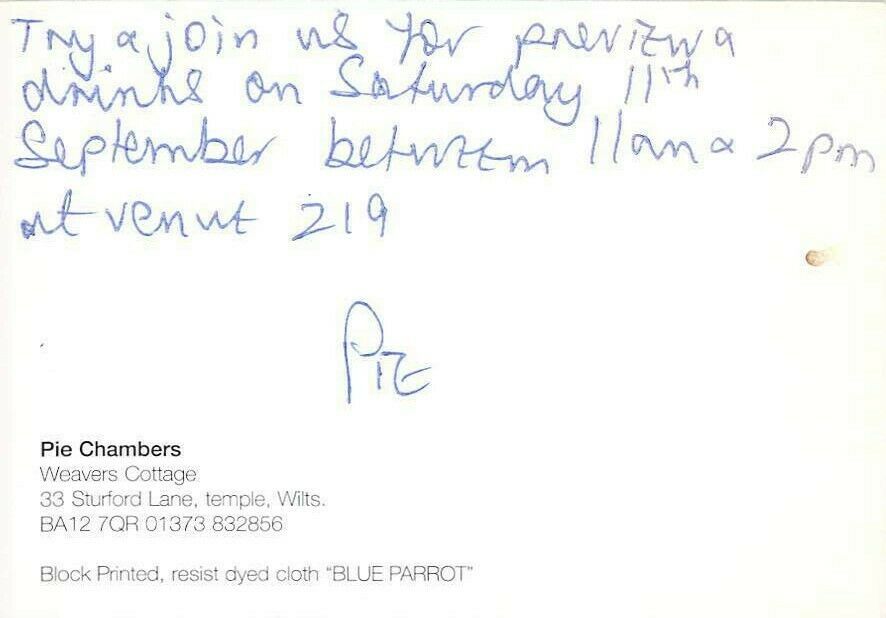 Try & join us for preview &
drinks on Saturday 11th
September between 11am & 2pm
at venue 219
PIE
Pie Chambers
Weavers Cottage
33 Sturford Lane, temple, Wilts.
BA12 7QR 01373 832856
Block Printed, resist dyed cloth "BLUE PARROT"